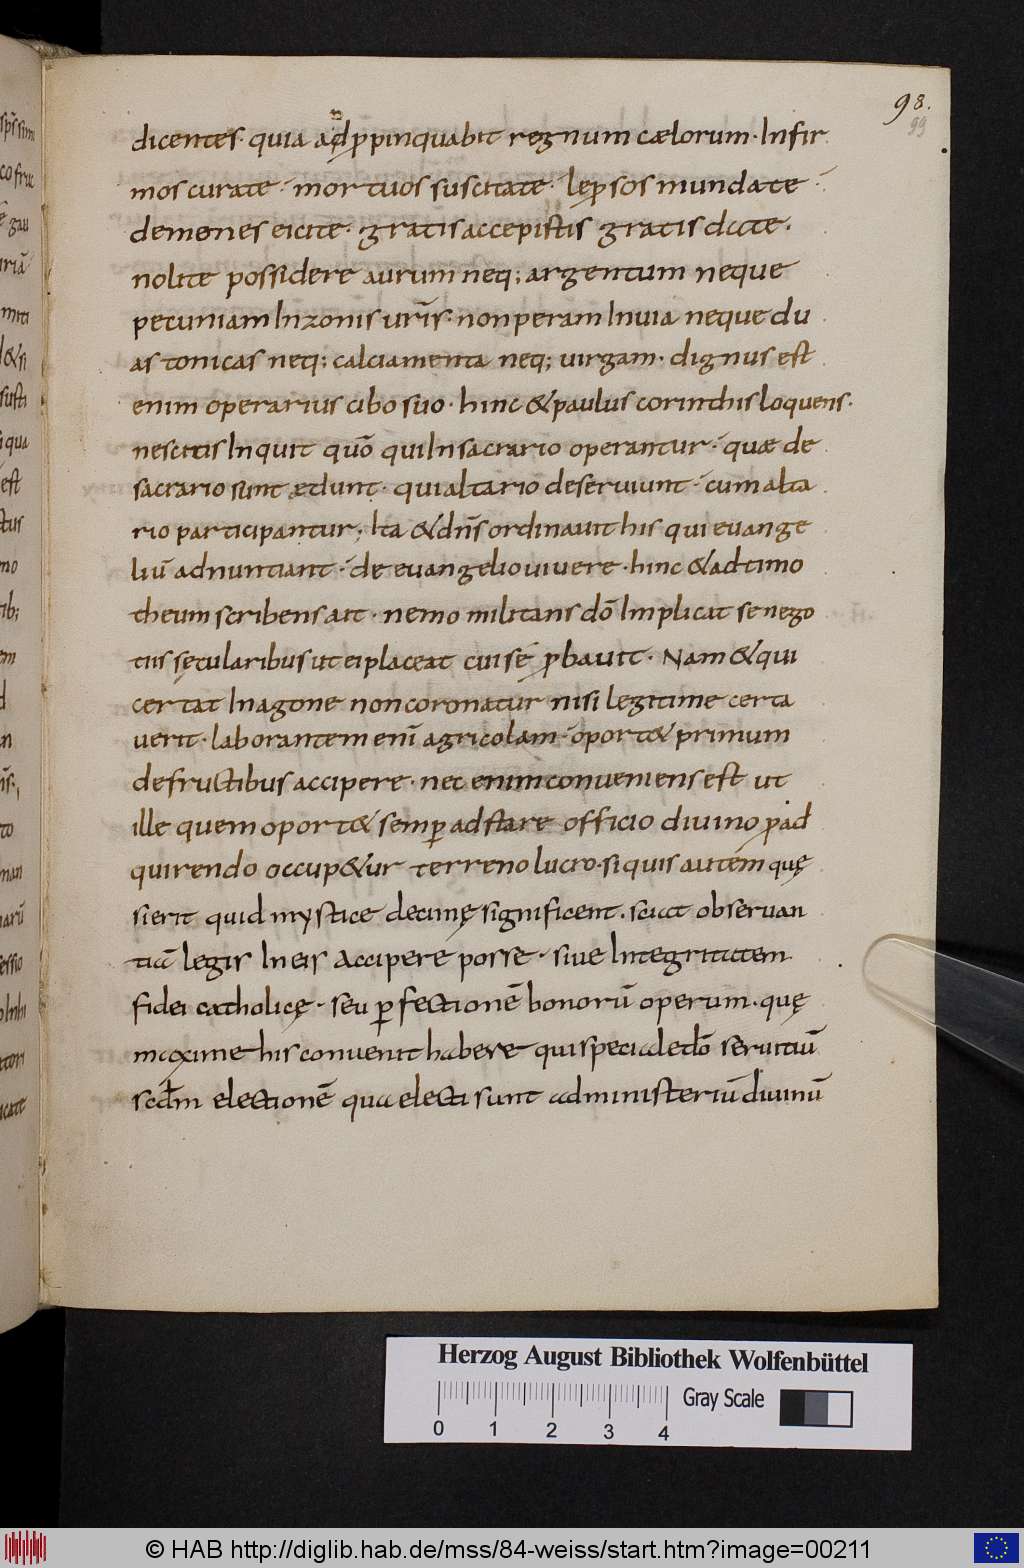 98.
99
dicentes· quia adp̱pinquabit regnum cælorum· Infir
mos curate· mortuos suscitate· lep̱sos mundate·
demones eicite· gratis accepistis gratis date·
nolite possidere aurum neq; argentum neque
pecuniam In zonis ur̄is· non peram In uia neque du
as tonicas neq; calciamenta neq; uirgam· dignus est
enim operarius cibo suo· hinc & paulus corinthis loquens·
nescitis Inquit quō qui In sacrario operantur· quæ de
sacrario sunt ædunt· qui altario deseruiunt· cum alta
rio participantur; Ita & dn̄s ordinauit his qui euange
liū adnuntiant· de euangelio uiuere· hinc & ad timo
theum scribens ait· nemo militans dō Implicat se nego
tiis sęcularibus ut ei placeat cui se p̱bauit· Nam & qui
certat In agone non coronatur nisi legitime certa
uerit· laborantem enī agricolam· oport& primum
de fructibus accipere· nec enim conueniens est ut
ille quem oport& semp̱ adstare officio diuino p̱ ad
quirendo occup&ur terreno lucro· si quis autem quę
sierit quid mystice decimę significent· sciat obseruan
tiā legis In eis accipere posse· siue Integritatem
fidei catholicę· seu p̱fectionē bonorū operum· quę
maxime his conuenit habere qui speciale dō seruitiū
scd̄m electionē qua electi sunt ad ministeriū diuinū
sp̄s sim
co fruc
ę gau
uriā
miti
l & si
susti
si qua
est
ctus
mo
rib;
em
d
n
n̄s·,
to
man
narū
fessio
o Inhi
tton
icate
Herzog August Bibliothek Wolfenbüttel
Gray Scale
0 1 2 3 4
© HAB http://diglib.hab.de/mss/84-weiss/start.htm?image=00211